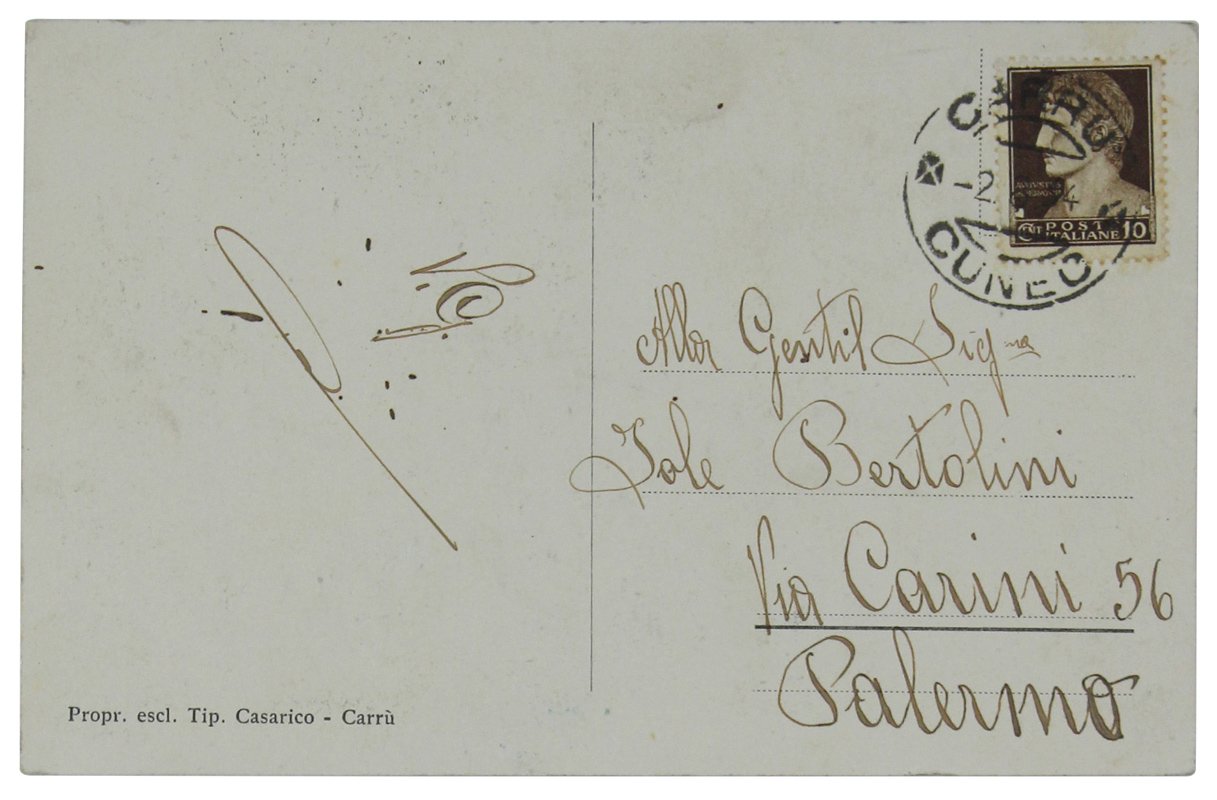 CARRÙ
CUNEO
POSTE
ITALIANE 10
Alla Gentil Signa
Jole Bertolini
Via Carini 56
Palermo
Propr. escl. Tip. Casarico - Carrù